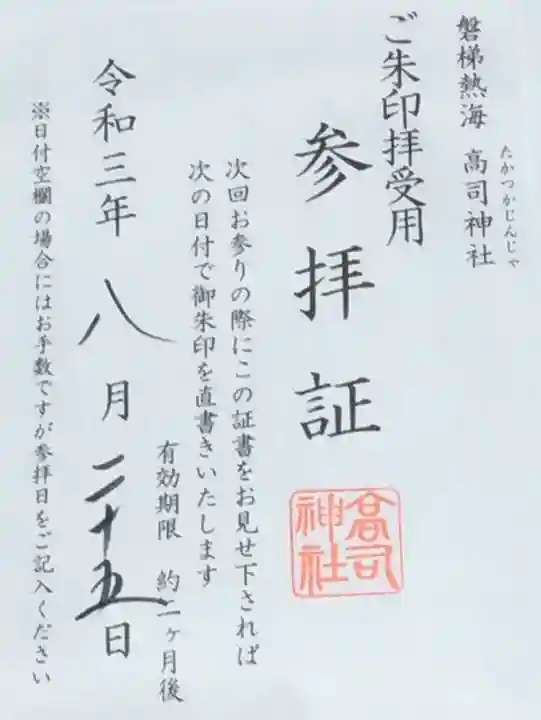 磐梯熱海 高司神社
たかつかじんじゃ
ご朱印拝受用
参拝証
高司
神社
次回お参りの際にこの証書をお見せ下されば
次の日付で御朱印を直書きいたします
有効期限 約二ヶ月後
令和三年 八月二十五日
※日付空欄の場合にはお手数ですが参拝日をご記入ください